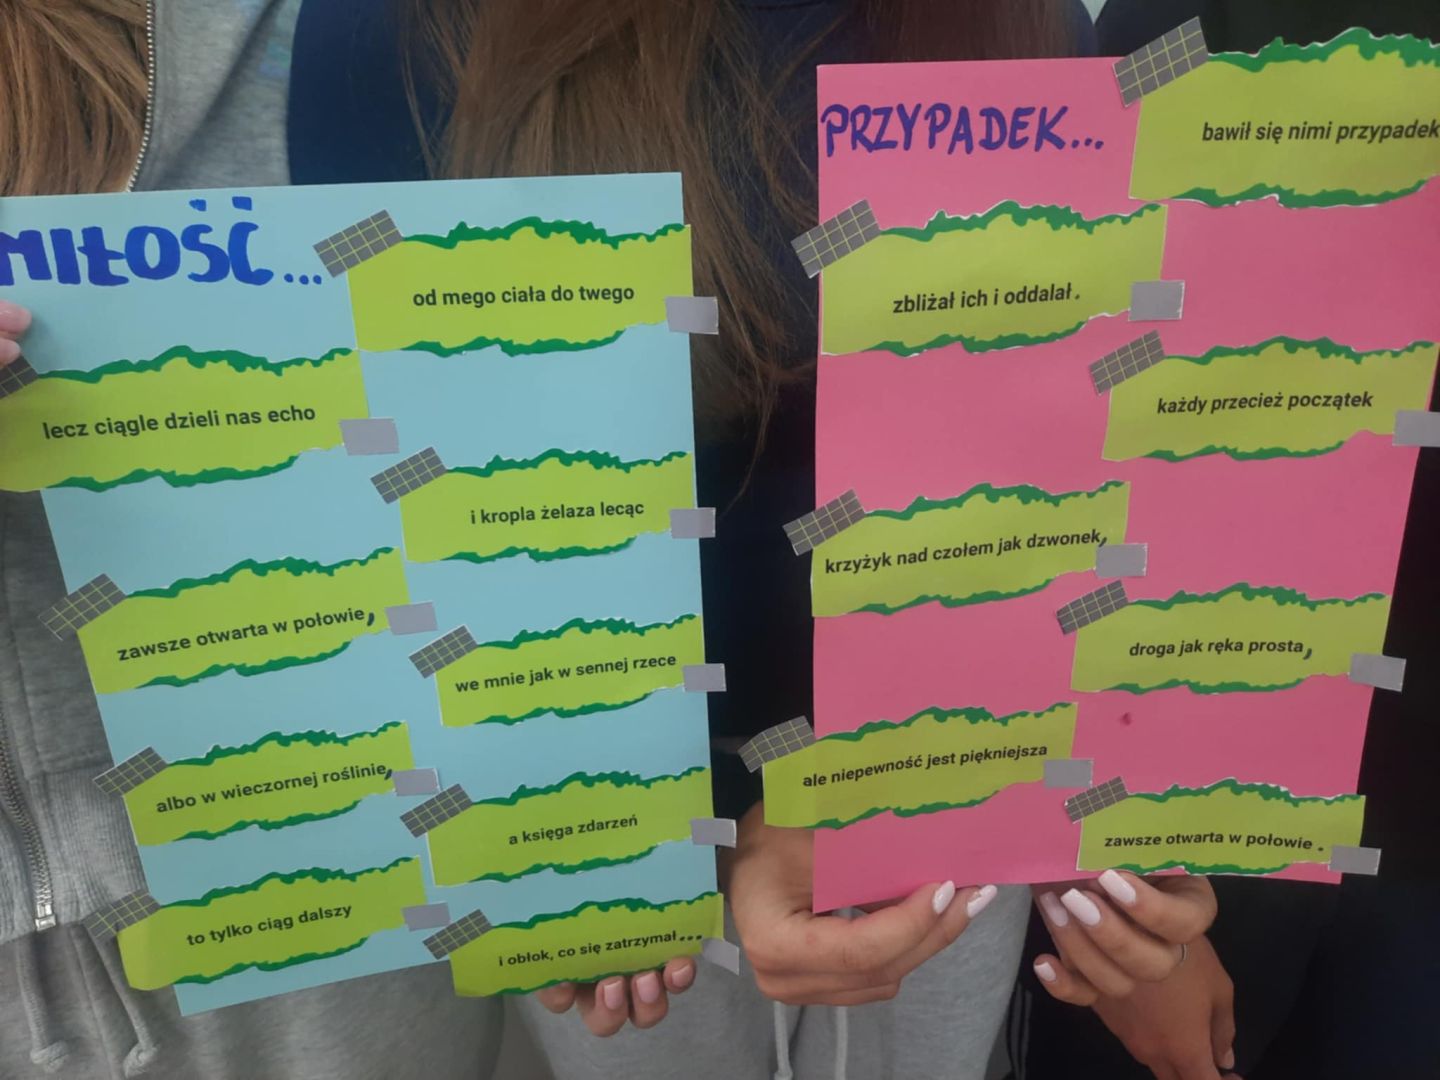 MIŁOŚĆ...
od mego ciała do twego
lecz ciągle dzieli nas echo
i kropla żelaza lecąc
zawsze otwarta w połowie,
we mnie jak w sennej rzece
albo w wieczornej roślinie,
a księga zdarzeń
to tylko ciąg dalszy
i obłok, co się zatrzymał...
PRZYPADEK...
bawił się nimi przypadek
zbliżał ich i oddalał.
każdy przecież początek
krzyżyk nad czołem jak dzwonek,
droga jak ręka prosta,
ale niepewność jest piękniejsza
zawsze otwarta w połowie.